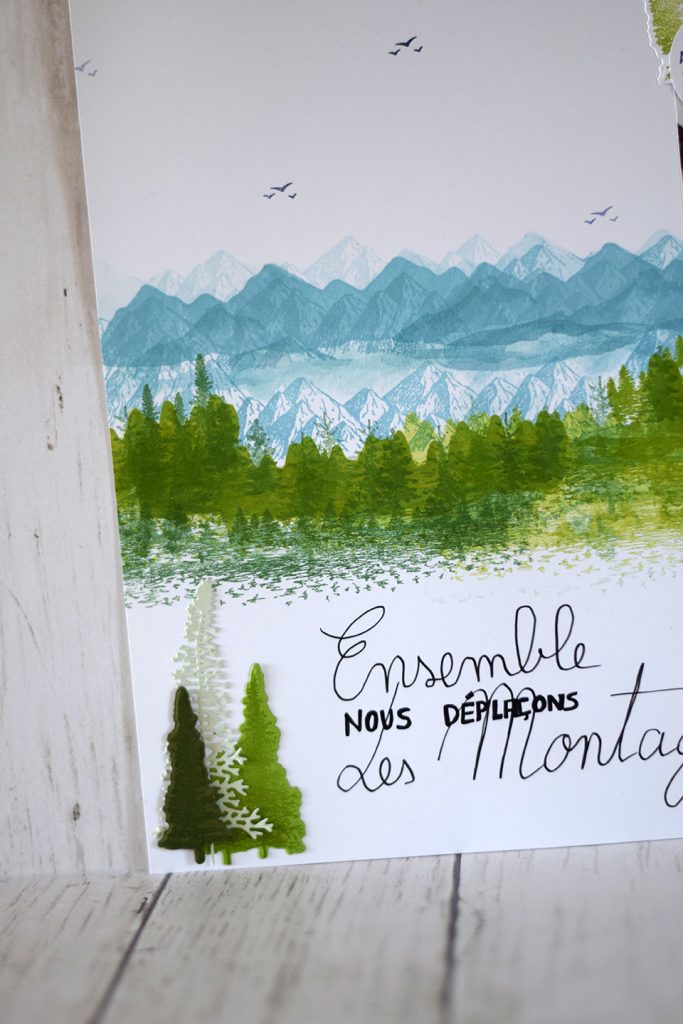 Ensemble
NOUS DÉPLAÇONS
Les Montag